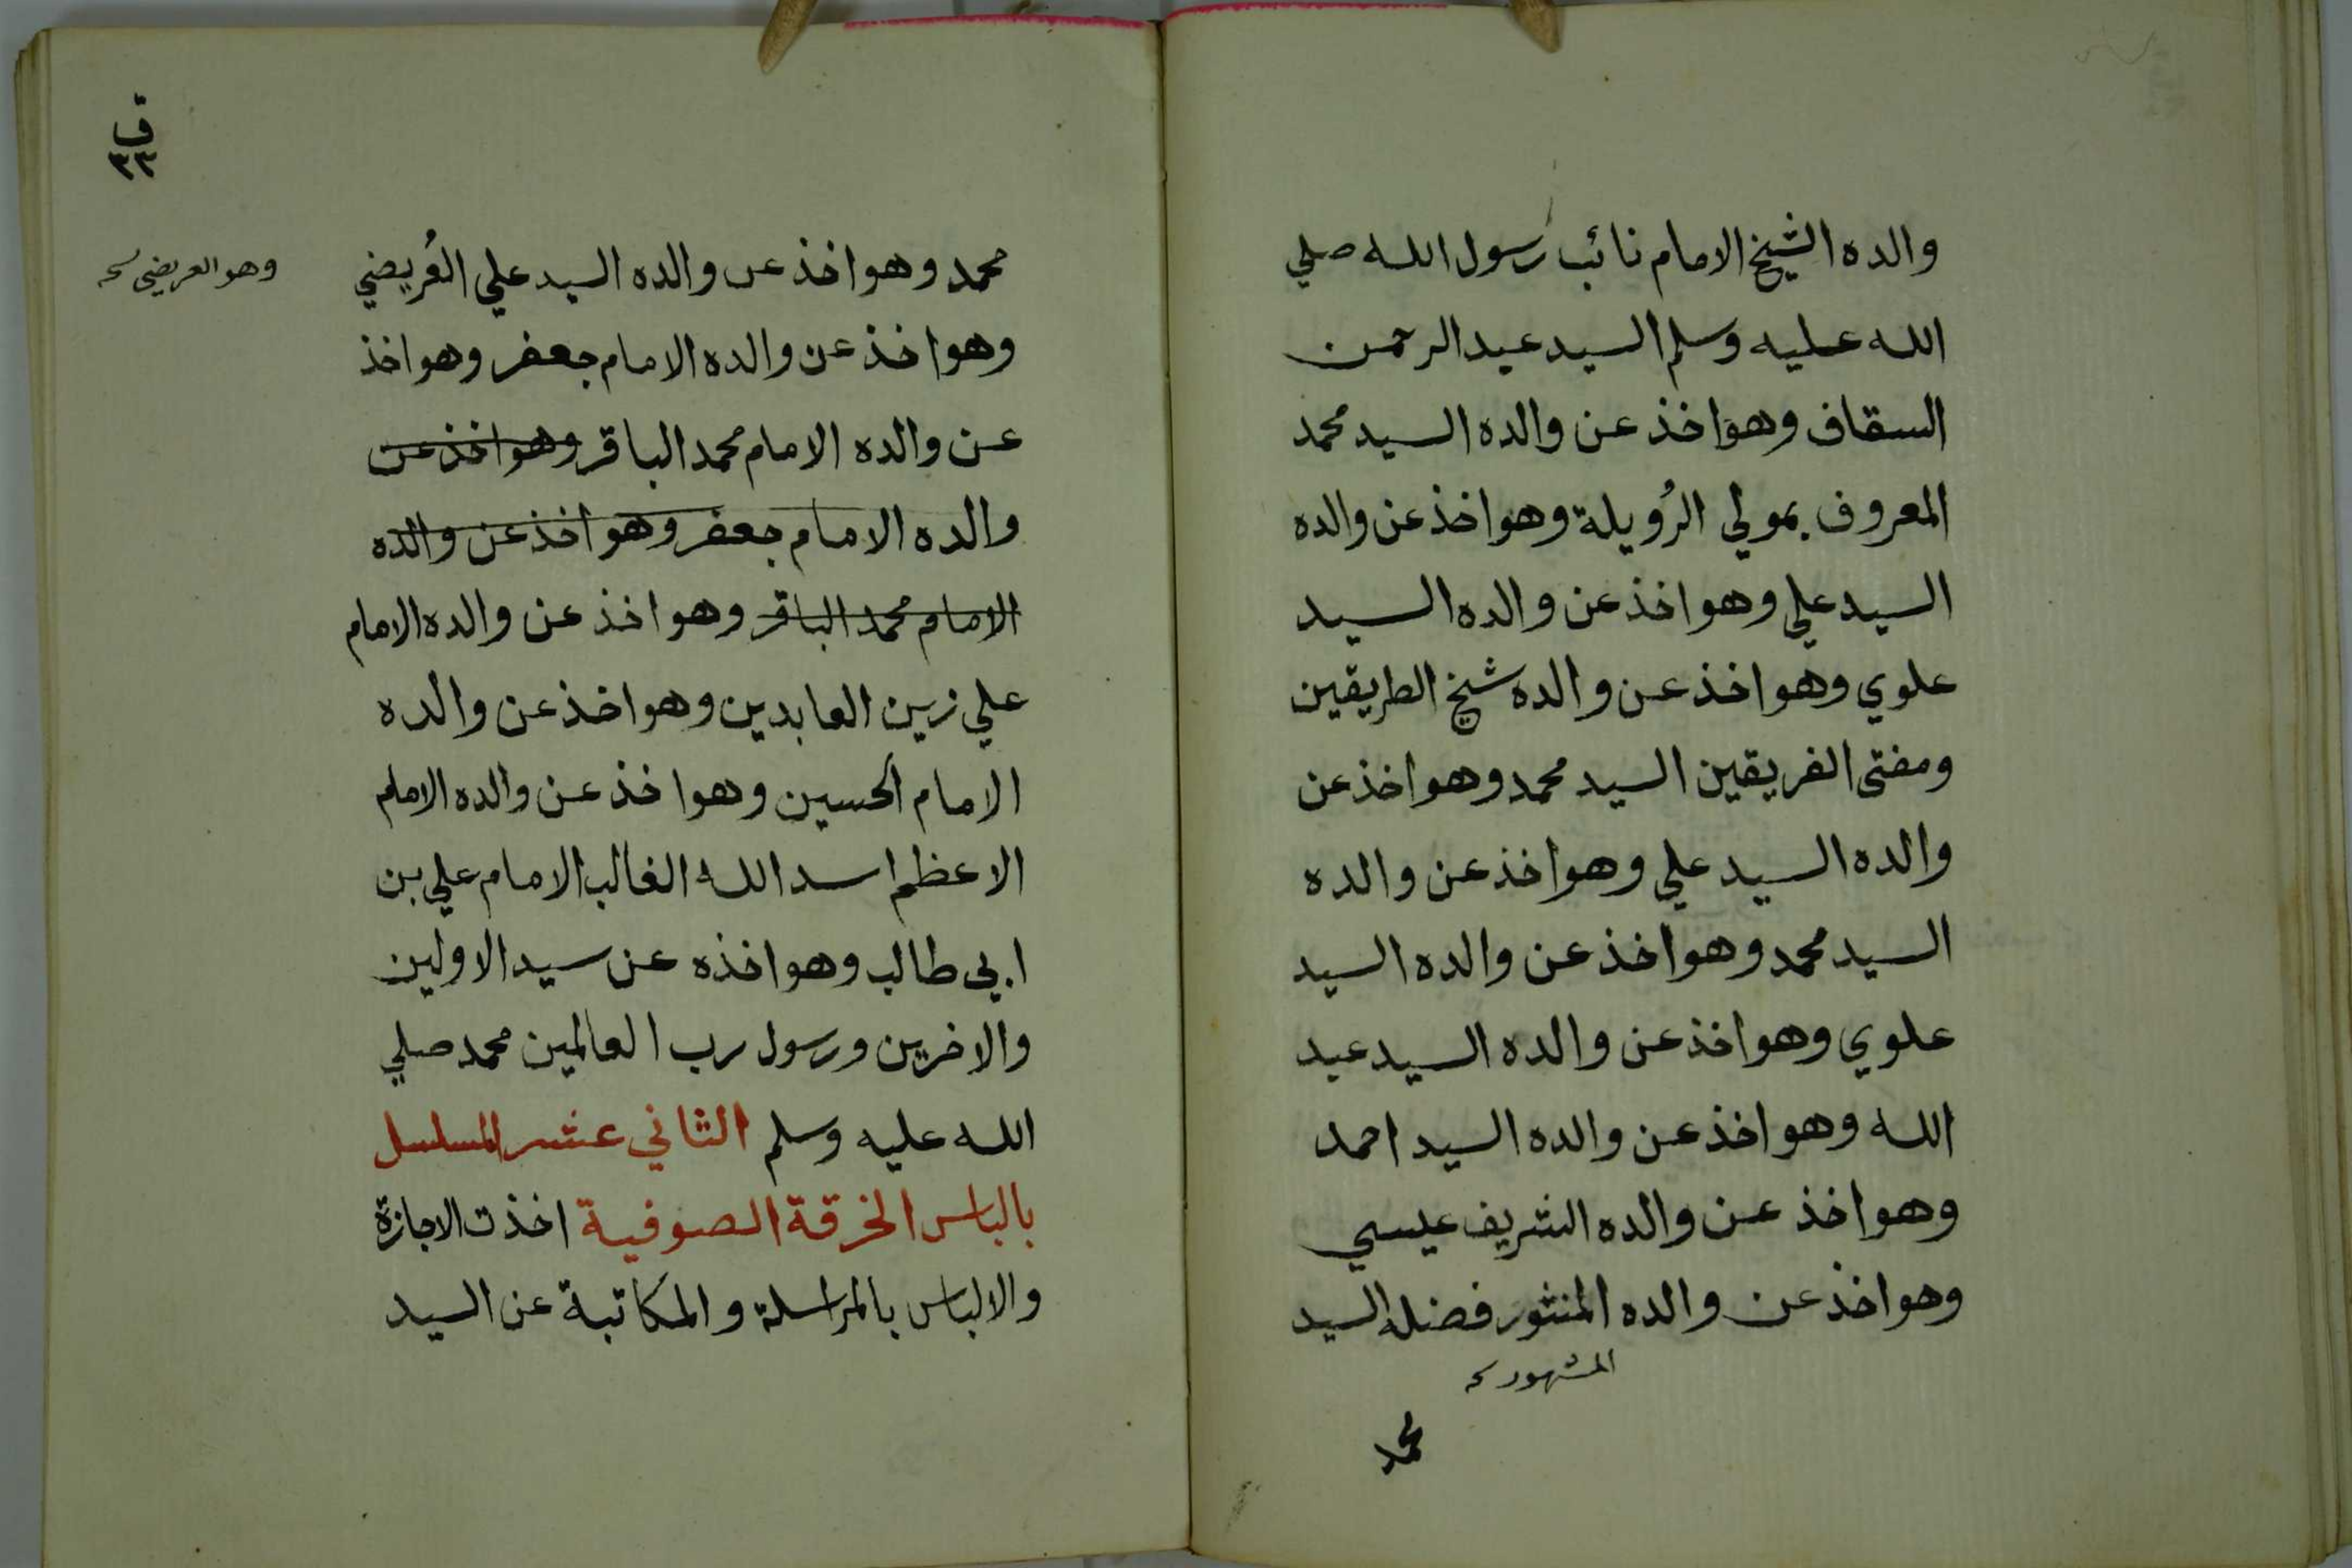 والده الشيخ الامام نائب رسول الله صلي
الله عليه وسلم السيد عبد الرحمن
السقاف وهو اخذ عن والده السيد محمد
المعروف بمولي الرُويلة وهو اخذ عن والده
السيد علي وهو اخذ عن والده السيد
علوي وهو اخذ عن والده شيخ الطريقين
ومفتى الفريقين السيد محمد وهو اخذ عن
والده السيد علي وهو اخذ عن والده
السيد محمد وهو اخذ عن والده السيد
علوي وهو اخذ عن والده السيد عبد
الله وهو اخذ عن والده السيد احمد
وهو اخذ عن والده الشريف عيسي
وهو اخذ عن والده المنثور فضله السيد
المشهور
محمد
ق
٣٣
محمد وهو اخذ عن والده السيد علي العُريضي
وهو العريضى
وهو اخذ عن والده الامام جعفر وهو اخذ
عن والده الامام محمد الباقر وهو اخذ عن
والده الامام جعفر وهو اخذ عن والده
الامام محمد الباقر وهو اخذ عن والده الامام
علي زين العابدين وهو اخذ عن والده
الامام الحسين وهو اخذ عن والده الامام
الاعظم اسد الله الغالب الامام علي بن
ابي طالب وهو اخذه عن سيد الاولين
والاخرين ورسول رب العالمين محمد صلي
الله عليه وسلم الثاني عشر المسلسل
بالباس الخرقة الصوفية اخذت الاجازة
والالباس بالمراسلة والمكاتبة عن السيد